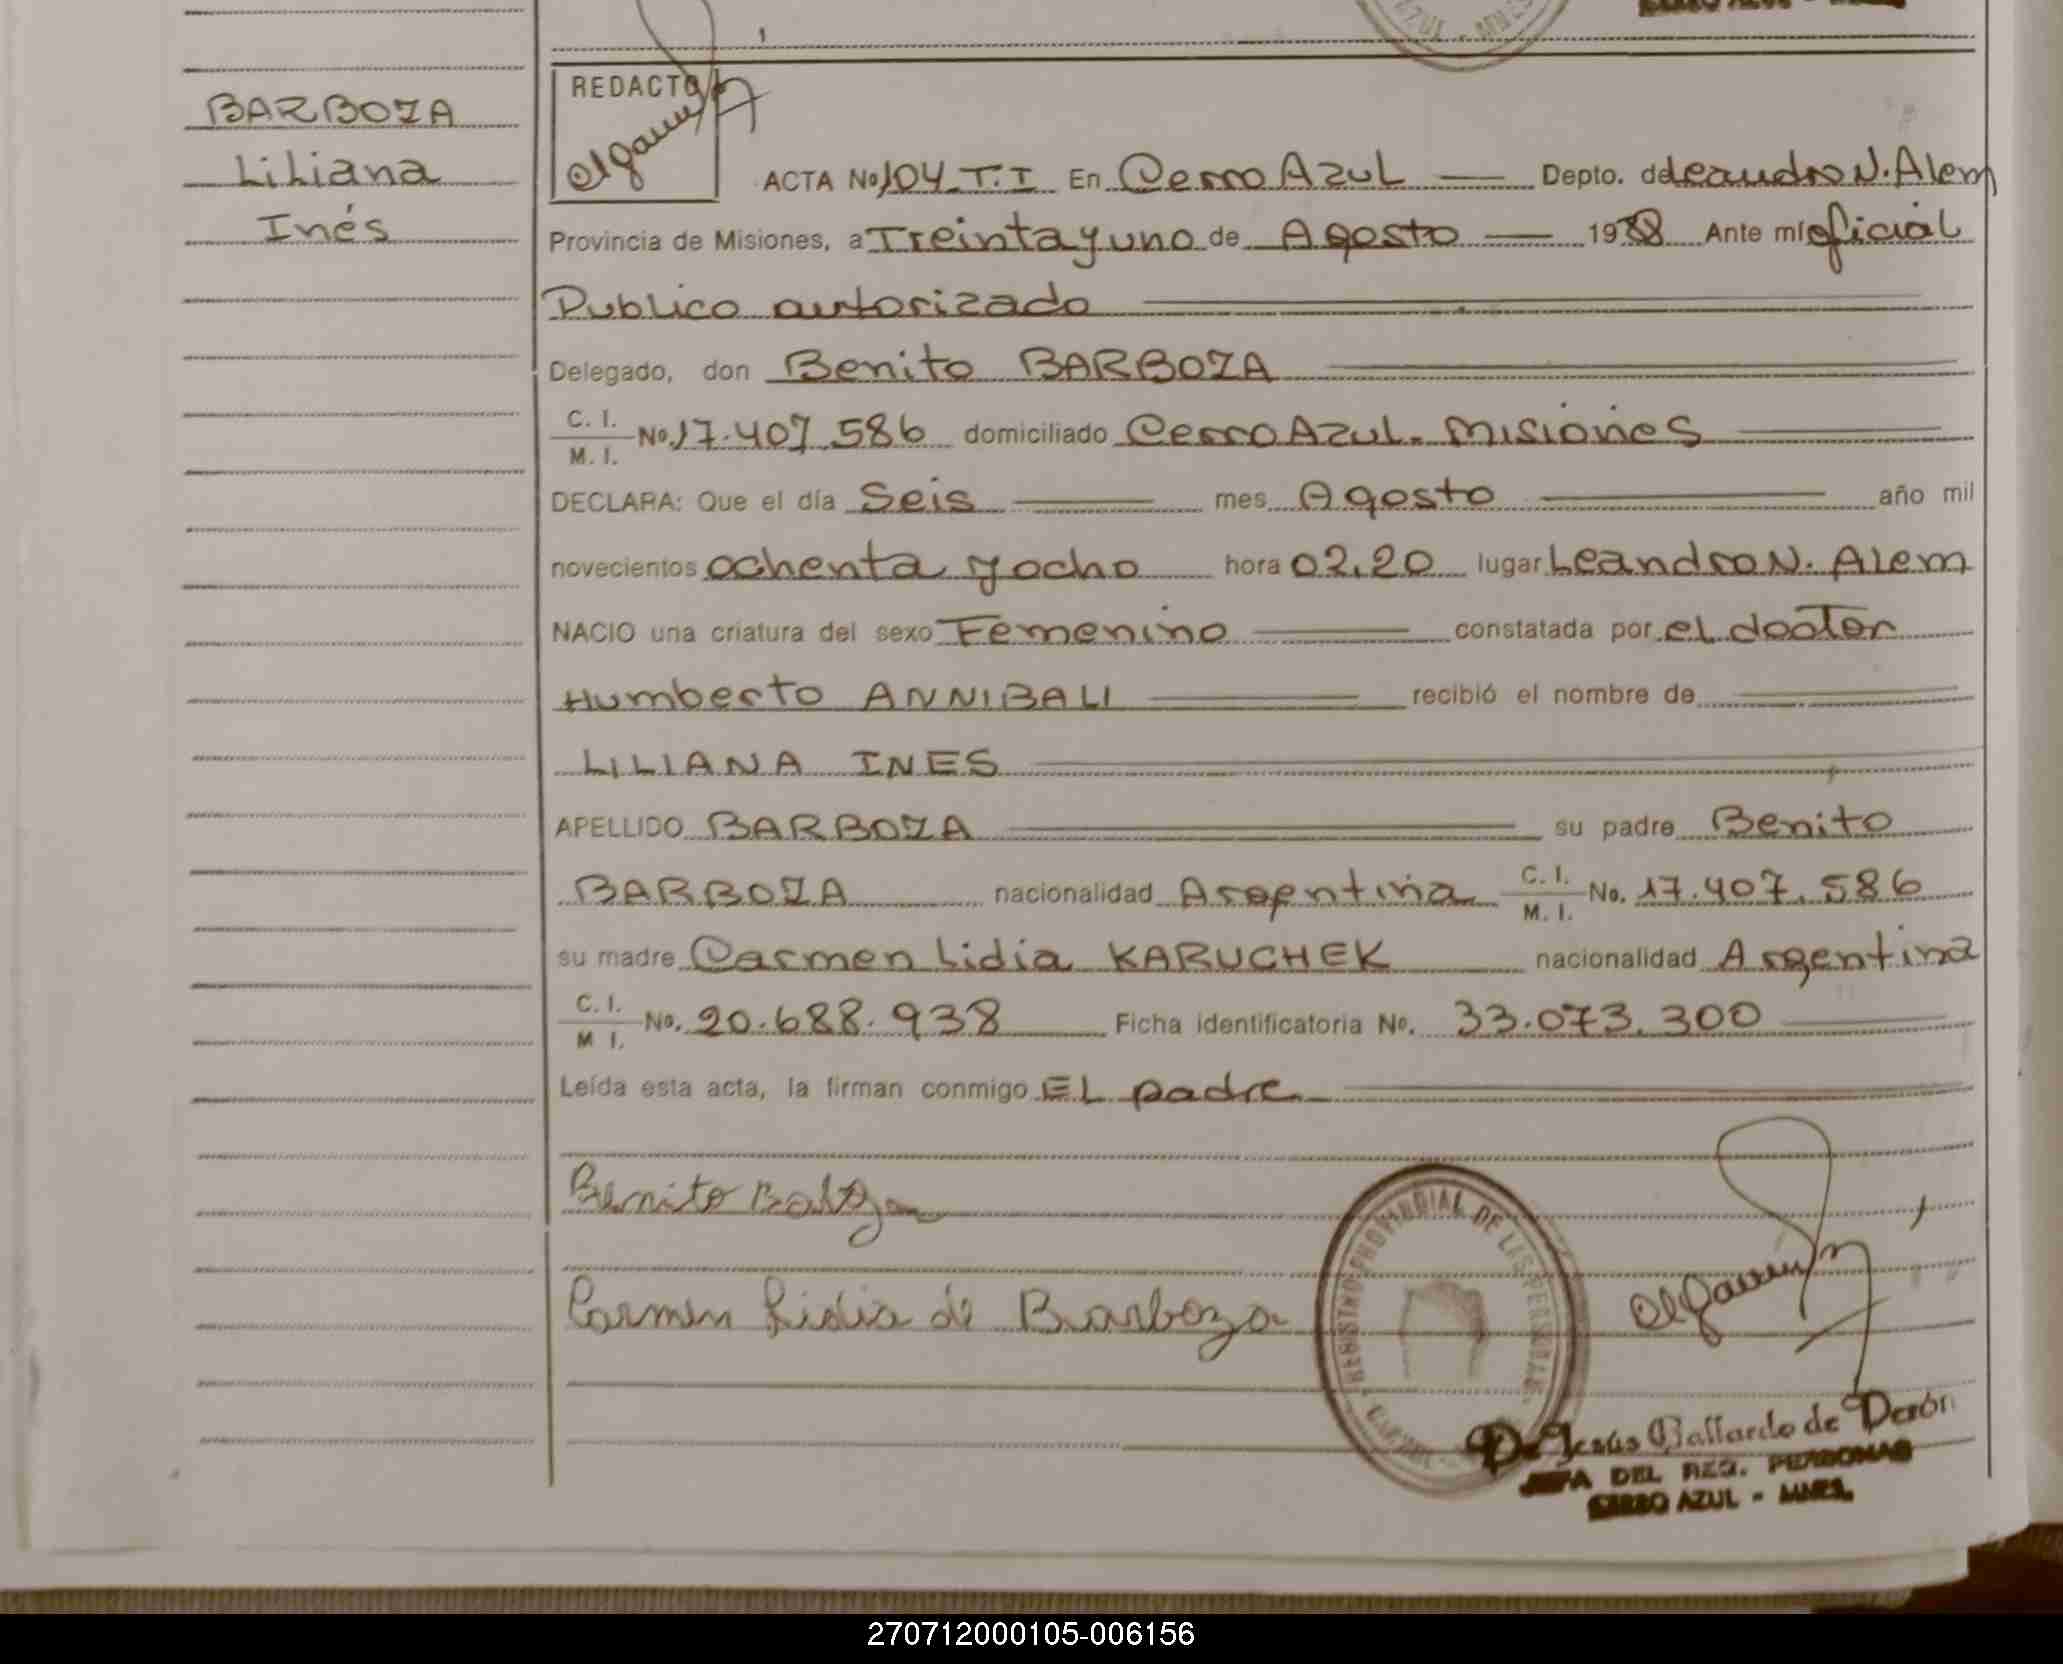 BARBOZA
Liliana
Inés
REDACTO
ACTA No 104 T.I En Cerro Azul Depto. de Leandro N. Alem
Provincia de Misiones, a Treinta y uno de Agosto 1988 Ante mí oficial
Publico autorizado
Delegado, don Benito BARBOZA
C. I.
M. I. No. 17.407.586 domiciliado Cerro Azul. Misiones
DECLARA: Que el día Seis mes Agosto año mil
novecientos ochenta y ocho hora 02.20 lugar Leandro N. Alem
NACIO una criatura del sexo Femenino constatada por el doctor
Humberto ANNIBALI recibió el nombre de
LILIANA INES
APELLIDO BARBOZA su padre Benito
BARBOZA nacionalidad Argentina C. I. M. I. No. 17.407.586
su madre Carmen Lidia KARUCHEK nacionalidad Argentina
C. I. M I. No. 20.688.938 Ficha identificatoria No. 33.073.300
Leída esta acta, la firman conmigo El padre
Benito Barboza
Carmen Lidia de Barboza
REGISTRO PROVINCIAL DE LAS PERSONAS
De Jesús Gallardo de Perón
JEFA DEL REG. PERSONAS
CERRO AZUL - MNES.
270712000105-006156